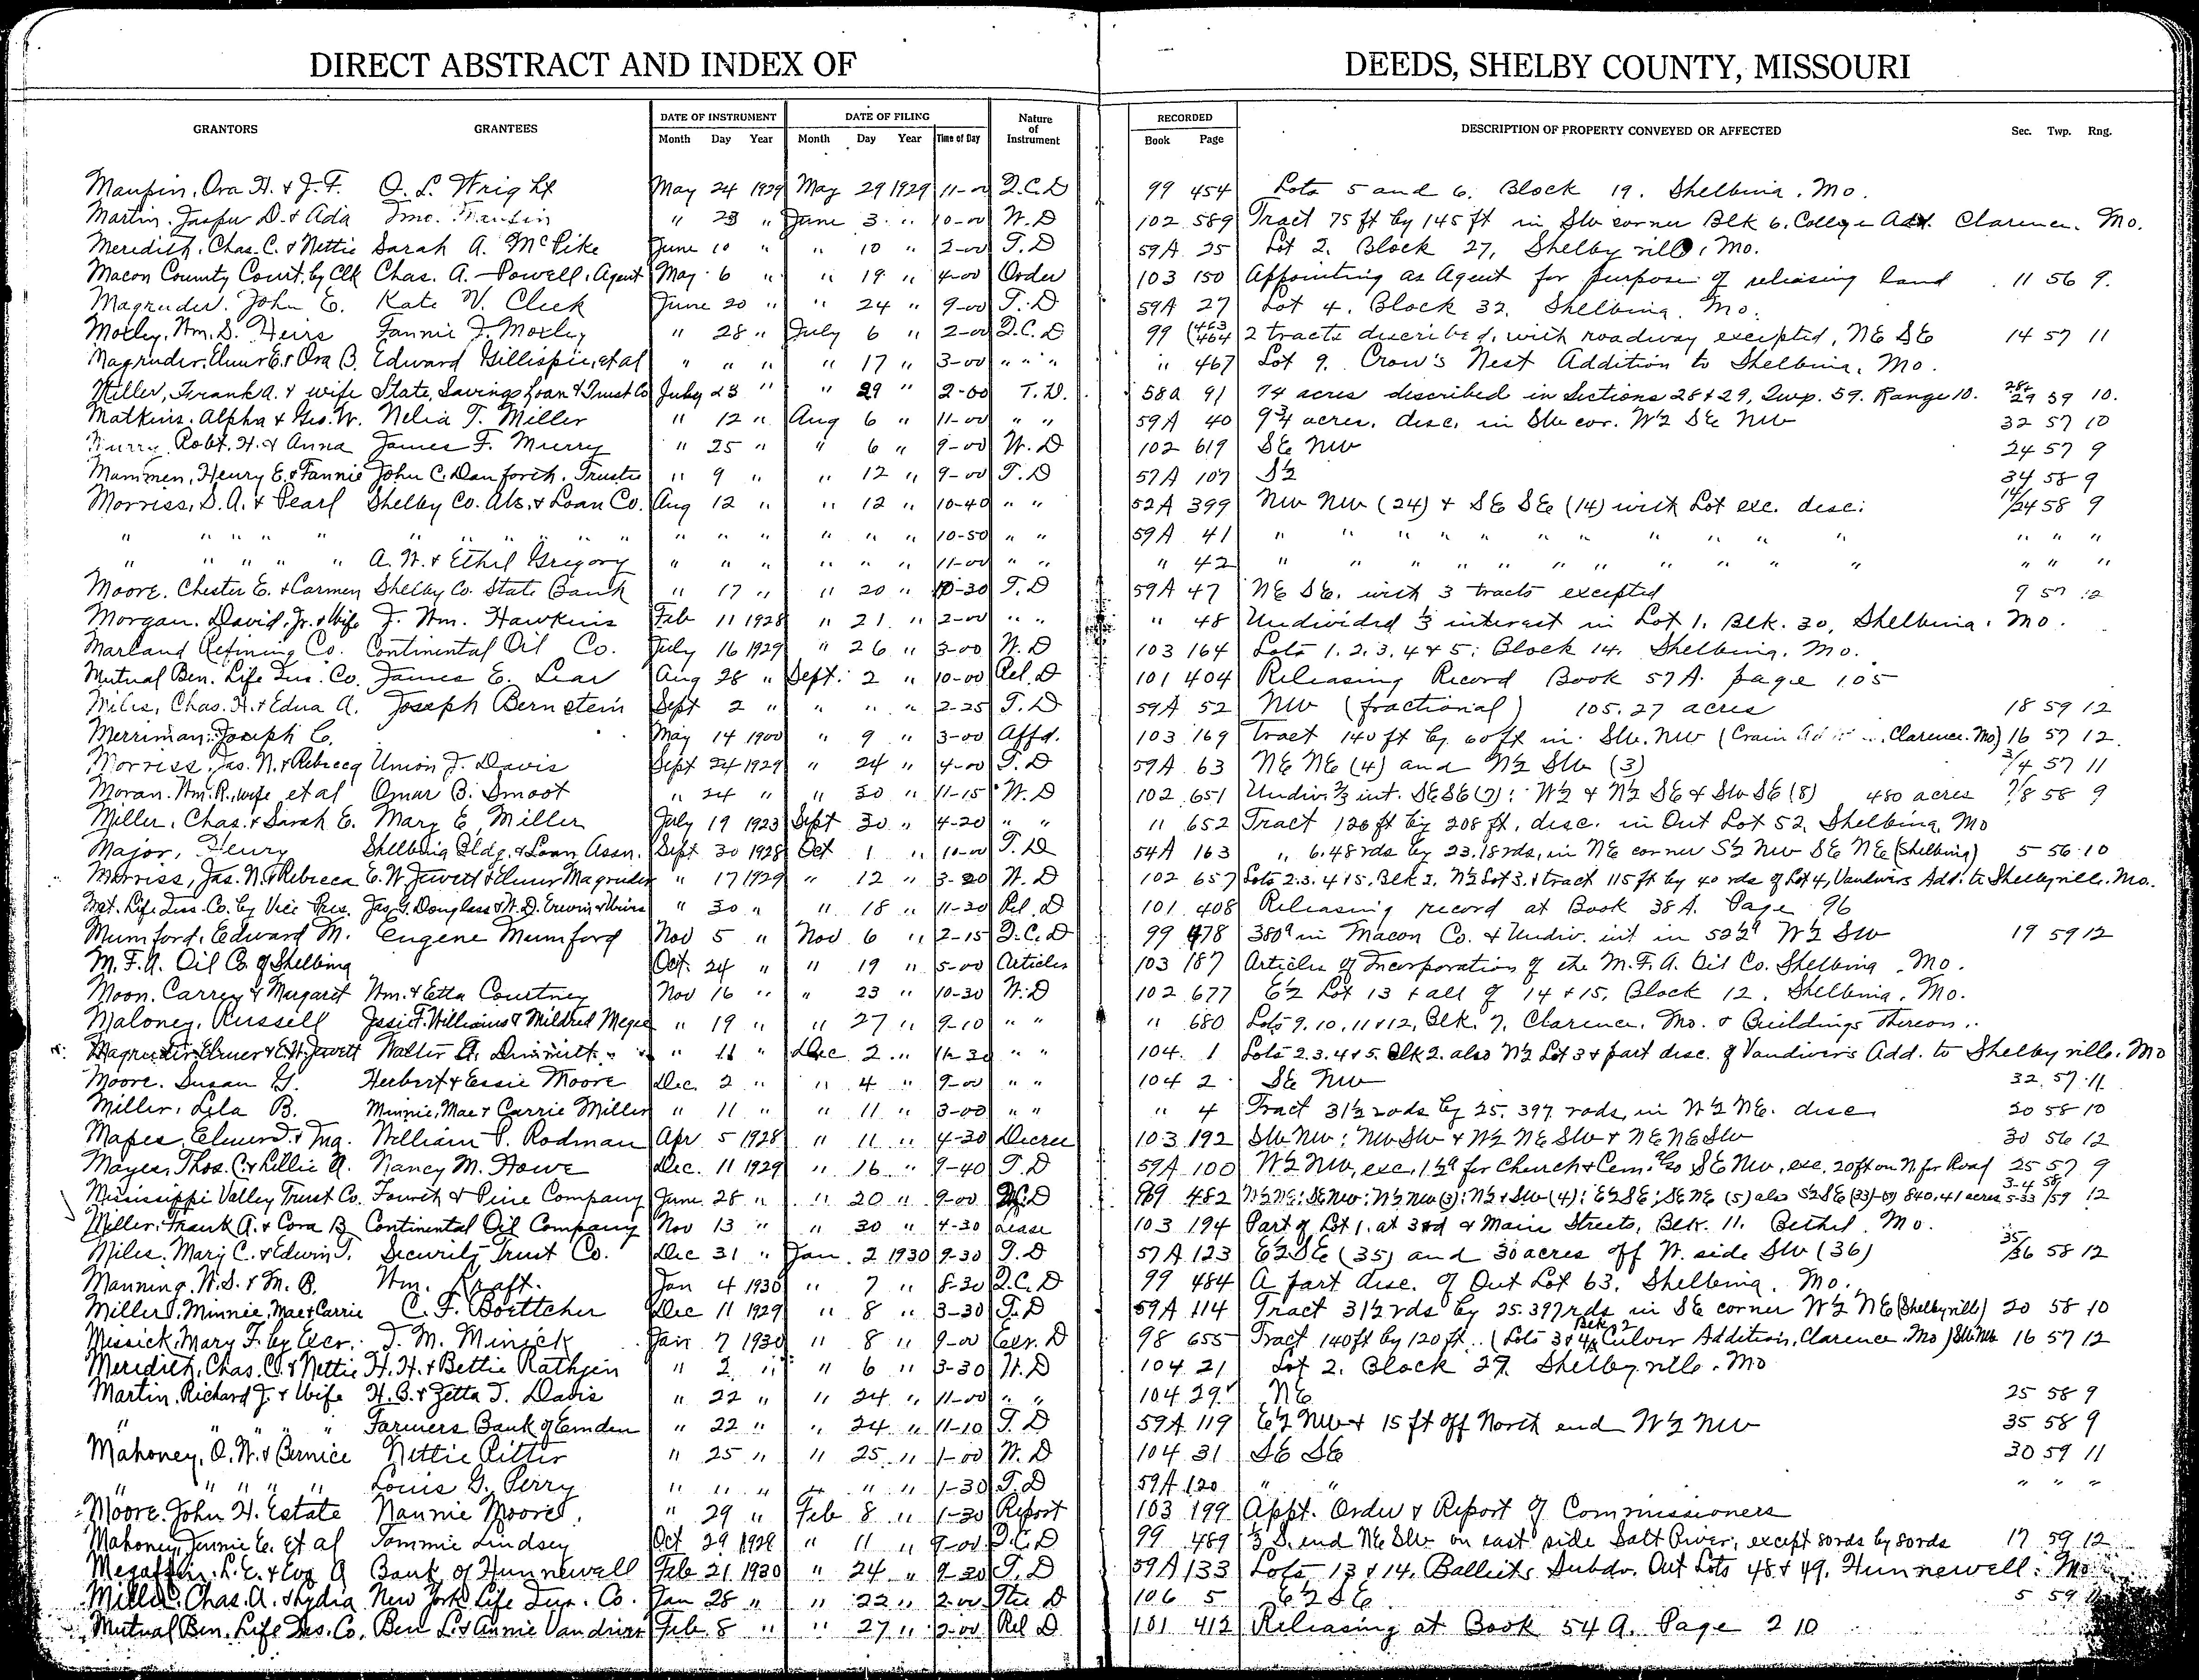 DIRECT ABSTRACT AND INDEX OF DEEDS, SHELBY COUNTY, MISSOURI
GRANTORS GRANTEES DATE OF INSTRUMENT Month Day Year DATE OF FILING Month Day Year Time of Day Nature of Instrument RECORDED Book Page DESCRIPTION OF PROPERTY CONVEYED OR AFFECTED Sec. Twp. Rng.
Maupin, Ora H. & J.F. O. L. Wright May 24 1929 May 29 1929 11-00 Q.C.D 99 454 Lots 5 and 6. Block 19. Shelbina, Mo.
Martin, Jasper D. & Ada Jno. " 23 " June 3 " 10-00 W.D 102 589 Tract 75 ft by 145 ft in SW corner Blk 6. College Add. Clarence. Mo.
Meredith, Chas. C. & Nettie Sarah A. McPike June 10 " " 10 " 2-00 T.D 59A 25 Lot 2. Block 27, Shelbyville, Mo.
Macon County Court, by Clk Chas. A. Powell, Agent May 6 " " 19 " 4-00 Order 103 150 Appointing as Agent for purpose of releasing land 11 56 9.
Magruder, John E. Kate V. Cleek June 20 " " 24 " 9-00 T.D 59A 27 Lot 4. Block 32. Shelbina, Mo.
Moxley, Wm. S. Heirs Fannie J. Moxley " 28 " July 6 " 2-00 Q.C.D 99 (463 464 2 tracts described, with roadway excepted, NE SE 14 57 11
Magruder, Elmer E. & Ora B. Edward Gillispie, et al " " " " 17 " 3-00 " " " " 467 Lot 9. Crow's Nest Addition to Shelbina, Mo.
Miller, Frank A. & wife State Savings Loan & Trust Co July 23 " " 29 " 2-00 T.D. 58A 91 74 acres described in Sections 28 & 29, Twp. 59. Range 10. 28& 29 59 10.
Matkins, Alpha & Geo. W. Nelia T. Miller " 12 " Aug 6 " 11-00 " " 59A 40 9¾ acres, desc. in SW cor. W½ SE NW 32 57 10
Murry, Robt. H. & Anna James F. Murry " 25 " " 6 " 9-00 W.D 102 619 SE NW 24 57 9
Mammen, Henry E. & Fannie John C. Danforth, Trustee " 9 " " 12 " 9-00 T.D 57A 107 S½ 34 58 9
Morriss, S.A. & Pearl Shelby Co. Abs. & Loan Co. Aug 12 " " 12 " 10-40 " " 52A 399 NW NW (24) & SE SE (14) with Lot exc. desc: 14/24 58 9
" " " " " " " " " " " " " " " " " " " 10-50 " " 59A 41 " " " " " " " " " " " " "
" " " " " A. W. & Ethel Gregory " " " " " " 11-00 " " " 42 " " " " " " " " " " " " "
Moore, Chester E. & Carmen Shelby Co. State Bank " 17 " " 20 " 10-30 T.D 59A 47 NE SE. with 3 tracts excepted 9 57 12
Morgan, David, Jr. & Wife J. Wm. Hawkins Feb 11 1928 " 21 " 2-00 " " " 48 Undivided ⅓ interest in Lot 1. Blk. 30, Shelbina, Mo.
Marland Refining Co. Continental Oil Co. July 16 1929 " 26 " 3-00 W.D 103 164 Lots 1.2.3.4 & 5; Block 14. Shelbina, Mo.
Mutual Ben. Life Ins. Co. James E. Lear Aug 28 " Sept. 2 " 10-00 Rel. D 101 404 Releasing Record Book 57A. page 105
Miles, Chas. H. & Edna A. Joseph Bernstein Sept 2 " " " " 2-25 T.D 59A 52 NW (fractional) 105.27 acres 18 59 12
Merriman, Joseph C. May 14 1900 " 9 " 3-00 Affd. 103 169 Tract 140 ft by 60 ft in SW. NW (Crain Clarence. Mo) 16 57 12.
Morriss, Jas. N. & Rebecca Union J. Davis Sept 24 1929 " 24 " 4-00 T.D 59A 63 NE NE (4) and N½ SW (3) 3/4 57 11
Moran, Wm. R., wife et al Omar B. Smoot " 24 " " 30 " 11-15 W.D 102 651 Undiv. ⅔ int. SE SE (7); W½ & N½ SE & SW SE (8) 480 acres 7/8 58 9
Miller, Chas. & Sarah E. Mary E. Miller July 19 1923 Sept 30 " 4-20 " " " 652 Tract 126 ft by 208 ft, desc. in Out Lot 52, Shelbina, Mo
Major, Henry Shelbina Bldg. & Loan Assn. Sept 30 1928 Oct 1 " 10-00 T.D 54A 163 " 6.48 rds by 23.18 rds, in NE corner S½ NW SE NE (Shelbina) 5 56 10
Morriss, Jas. N. & Rebecca E. W. Jewett & Elmer Magruder " 17 1929 " 12 " 3-20 W.D 102 657 Lots 2.3.4 & 5, Blk 2, N½ Lot 3, & tract 115 ft by 40 rds of Lot 4, Vandivers Add. to Shelbyville. Mo.
Met. Life Ins. Co. by Vice Pres. Jas. G. Douglass & W. D. Erwin & Wives " 30 " " 18 " 11-30 Rel. D 101 408 Releasing record at Book 38A. Page 96
Mumford, Edward M. Eugene Mumford Nov 5 " Nov 6 " 2-15 Q.C.D 99 478 380ª in Macon Co. & Undiv. int in 52½ª W½ SW 19 59 12
M.F.A. Oil Co. of Shelbina Oct. 24 " " 19 " 5-00 Articles 103 187 Articles of Incorporation of the M.F.A. Oil Co. Shelbina, Mo.
Moon, Carrey & Margaret Wm. & Etta Courtney Nov 16 " " 23 " 10-30 W.D 102 677 E½ Lot 13 & all of 14 & 15, Block 12, Shelbina, Mo.
Maloney, Russell Jessie F. Williams & Mildred Megee " 19 " " 27 " 9-10 " " " 680 Lots 9.10.11 & 12, Blk. 7, Clarence, Mo. & Buildings Thereon.
Magruder, Elmer & E.W. Jewett Walter A. Dimmitt " 11 " Dec 2 " 11-30 " " 104 1 Lots 2.3.4 & 5. Blk 2. also N½ Lot 3 & part desc. of Vandivers Add. to Shelbyville, Mo
Moore, Susan G. Herbert & Essie Moore Dec. 2 " " 4 " 9-00 " " 104 2 SE NW 32 57 11
Miller, Lela B. Minnie, Mae & Carrie Miller " 11 " " 11 " 3-00 " " " 4 Tract 31½ rods by 25.397 rods, in W½ NE. desc. 20 58 10
Mapes, Elmer J. & Ina. William P. Rodman Apr 5 1928 " 11 " 4-30 Decree 103 192 SW NW; NW SW & W½ NE SW & NE NE SW 30 56 12
Mayes, Thos. C. & Lillie A. Nancy M. Howe Dec. 11 1929 " 16 " 9-40 T.D 59A 100 W½ NW, exc. 1½ª for Church & Cem. also SE NW, exc. 20 ft on N for Road 25 57 9
Mississippi Valley Trust Co. Fourth & Pine Company June 28 " " 20 " 9-00 Q.C.D 99 482 W½ NE; SE NW; W½ NW (3); N½ & SW (4); E½ SE; SE NE (5) also S½ SE (33)-59 840.41 acres 3-4 58 5-33/59 12
Miller, Frank A. & Cora B. Continental Oil Company Nov 13 " " 30 " 4-30 Lease 103 194 Part of Lot 1. at 3rd & Main Streets, Blk. 11. Bethel, Mo.
Miles, Mary C. & Edwin T. Security Trust Co. Dec 31 " Jan. 2 1930 9-30 T.D 57A 123 E½ SE (35) and 30 acres off W. side SW (36) 35/36 58 12
Manning, W.S. & M.B. Wm. Kraft. Jan 4 1930 " 7 " 8-30 Q.C.D 99 484 A part desc. of Out Lot 63. Shelbina, Mo.
Miller, Minnie, Mae & Carrie C. F. Boettcher Dec 11 1929 " 8 " 3-30 T.D 59A 114 Tract 31½ rds by 25.397 rds in SE corner W½ NE (Shelbyville) 20 58 10
Messick, Mary F. by Excr. T. M. Minick Jan 7 1930 " 8 " 9-00 Exr. D 98 655 Tract 140 ft by 120 ft. (Lots 3 & 4, Blk 2 Culver Addition, Clarence, Mo) SW NW 16 57 12
Meredith, Chas. C. & Nettie H. H. & Bettie Rathjen " 2 " " 6 " 3-30 W.D 104 21 Lot 2. Block 27, Shelbyville, Mo
Martin, Richard J. & Wife H. B. & Zetta J. Davis " 22 " " 24 " 11-00 " " 104 29 NE 25 58 9
" " " " Farmers Bank of Emden " 22 " " 24 " 11-10 T.D 59A 119 E½ NW & 15 ft off North end W½ NW 35 58 9
Mahoney, O.W. & Bernice Nettie Ritter " 25 " " 25 " 1-00 W.D 104 31 SE SE 30 59 11
" " " " Louis G. Perry " " " " " " 1-30 T.D 59A 120 " " " " "
Moore, John H. Estate Nannie Moore " 29 " Feb 8 " 1-30 Report 103 199 Appt. Order & Report of Commissioners
Mahoney, Jennie E. et al Tommie Lindsey Oct 29 1929 " 11 " 9-00 Q.C.D 99 489 ⅓ S. end NE SW on east side Salt River, except 80 rds by 80 rds 17 59 12
Megaffin, L.E. & Eva A Bank of Hunnewell Feb 21 1930 " 24 " 9-30 T.D 59A 133 Lots 13 & 14. Subdv. Out Lots 48 & 49. Hunnewell, Mo.
Miller, Chas. A. & Lydia New York Life Ins. Co. Jan 28 " " 22 " 2-00 Tte D 106 5 E½ SE 5 59 11
Mutual Ben. Life Ins. Co. Ben L. & Annie Vandiver Feb. 8 " " 27 " 2-00 Rel D 101 412 Releasing at Book 54A. Page 210